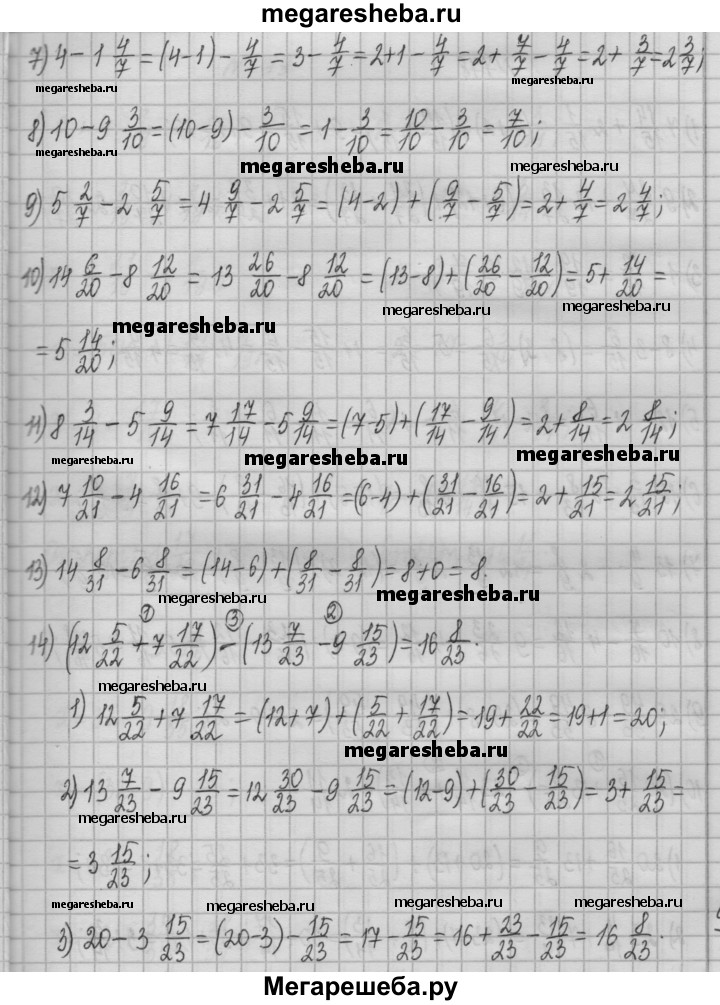 megaresheba.ru
7) 4 - 1 4/7 = (4-1) - 4/7 = 3 - 4/7 = 2+1 - 4/7 = 2 + 7/7 - 4/7 = 2 + 3/7 = 2 3/7;
megaresheba.ru megaresheba.ru
8) 10 - 9 3/10 = (10-9) - 3/10 = 1 - 3/10 = 10/10 - 3/10 = 7/10;
megaresheba.ru megaresheba.ru megaresheba.ru
9) 5 2/7 - 2 5/7 = 4 9/7 - 2 5/7 = (4-2) + (9/7 - 5/7) = 2 + 4/7 = 2 4/7;
10) 14 6/20 - 8 12/20 = 13 26/20 - 8 12/20 = (13-8) + (26/20 - 12/20) = 5 + 14/20 =
megaresheba.ru megaresheba.ru
= 5 14/20;
megaresheba.ru
11) 8 3/14 - 5 9/14 = 7 17/14 - 5 9/14 = (7-5) + (17/14 - 9/14) = 2 + 8/14 = 2 8/14;
megaresheba.ru megaresheba.ru megaresheba.ru
12) 7 10/21 - 4 16/21 = 6 31/21 - 4 16/21 = (6-4) + (31/21 - 16/21) = 2 + 15/21 = 2 15/21;
13) 14 8/31 - 6 8/31 = (14-6) + (8/31 - 8/31) = 8+0 = 8.
megaresheba.ru megaresheba.ru
1 3 2
14) (12 5/22 + 7 17/22) - (13 7/23 - 9 15/23) = 16 8/23.
megaresheba.ru megaresheba.ru
1) 12 5/22 + 7 17/22 = (12+7) + (5/22 + 17/22) = 19 + 22/22 = 19+1 = 20;
megaresheba.ru
2) 13 7/23 - 9 15/23 = 12 30/23 - 9 15/23 = (12-9) + (30/23 - 15/23) = 3 + 15/23 =
megaresheba.ru
= 3 15/23;
megaresheba.ru
megaresheba.ru megaresheba.ru megaresheba.ru
3) 20 - 3 15/23 = (20-3) - 15/23 = 17 - 15/23 = 16 + 23/23 - 15/23 = 16 8/23.
Мегарешеба.ру